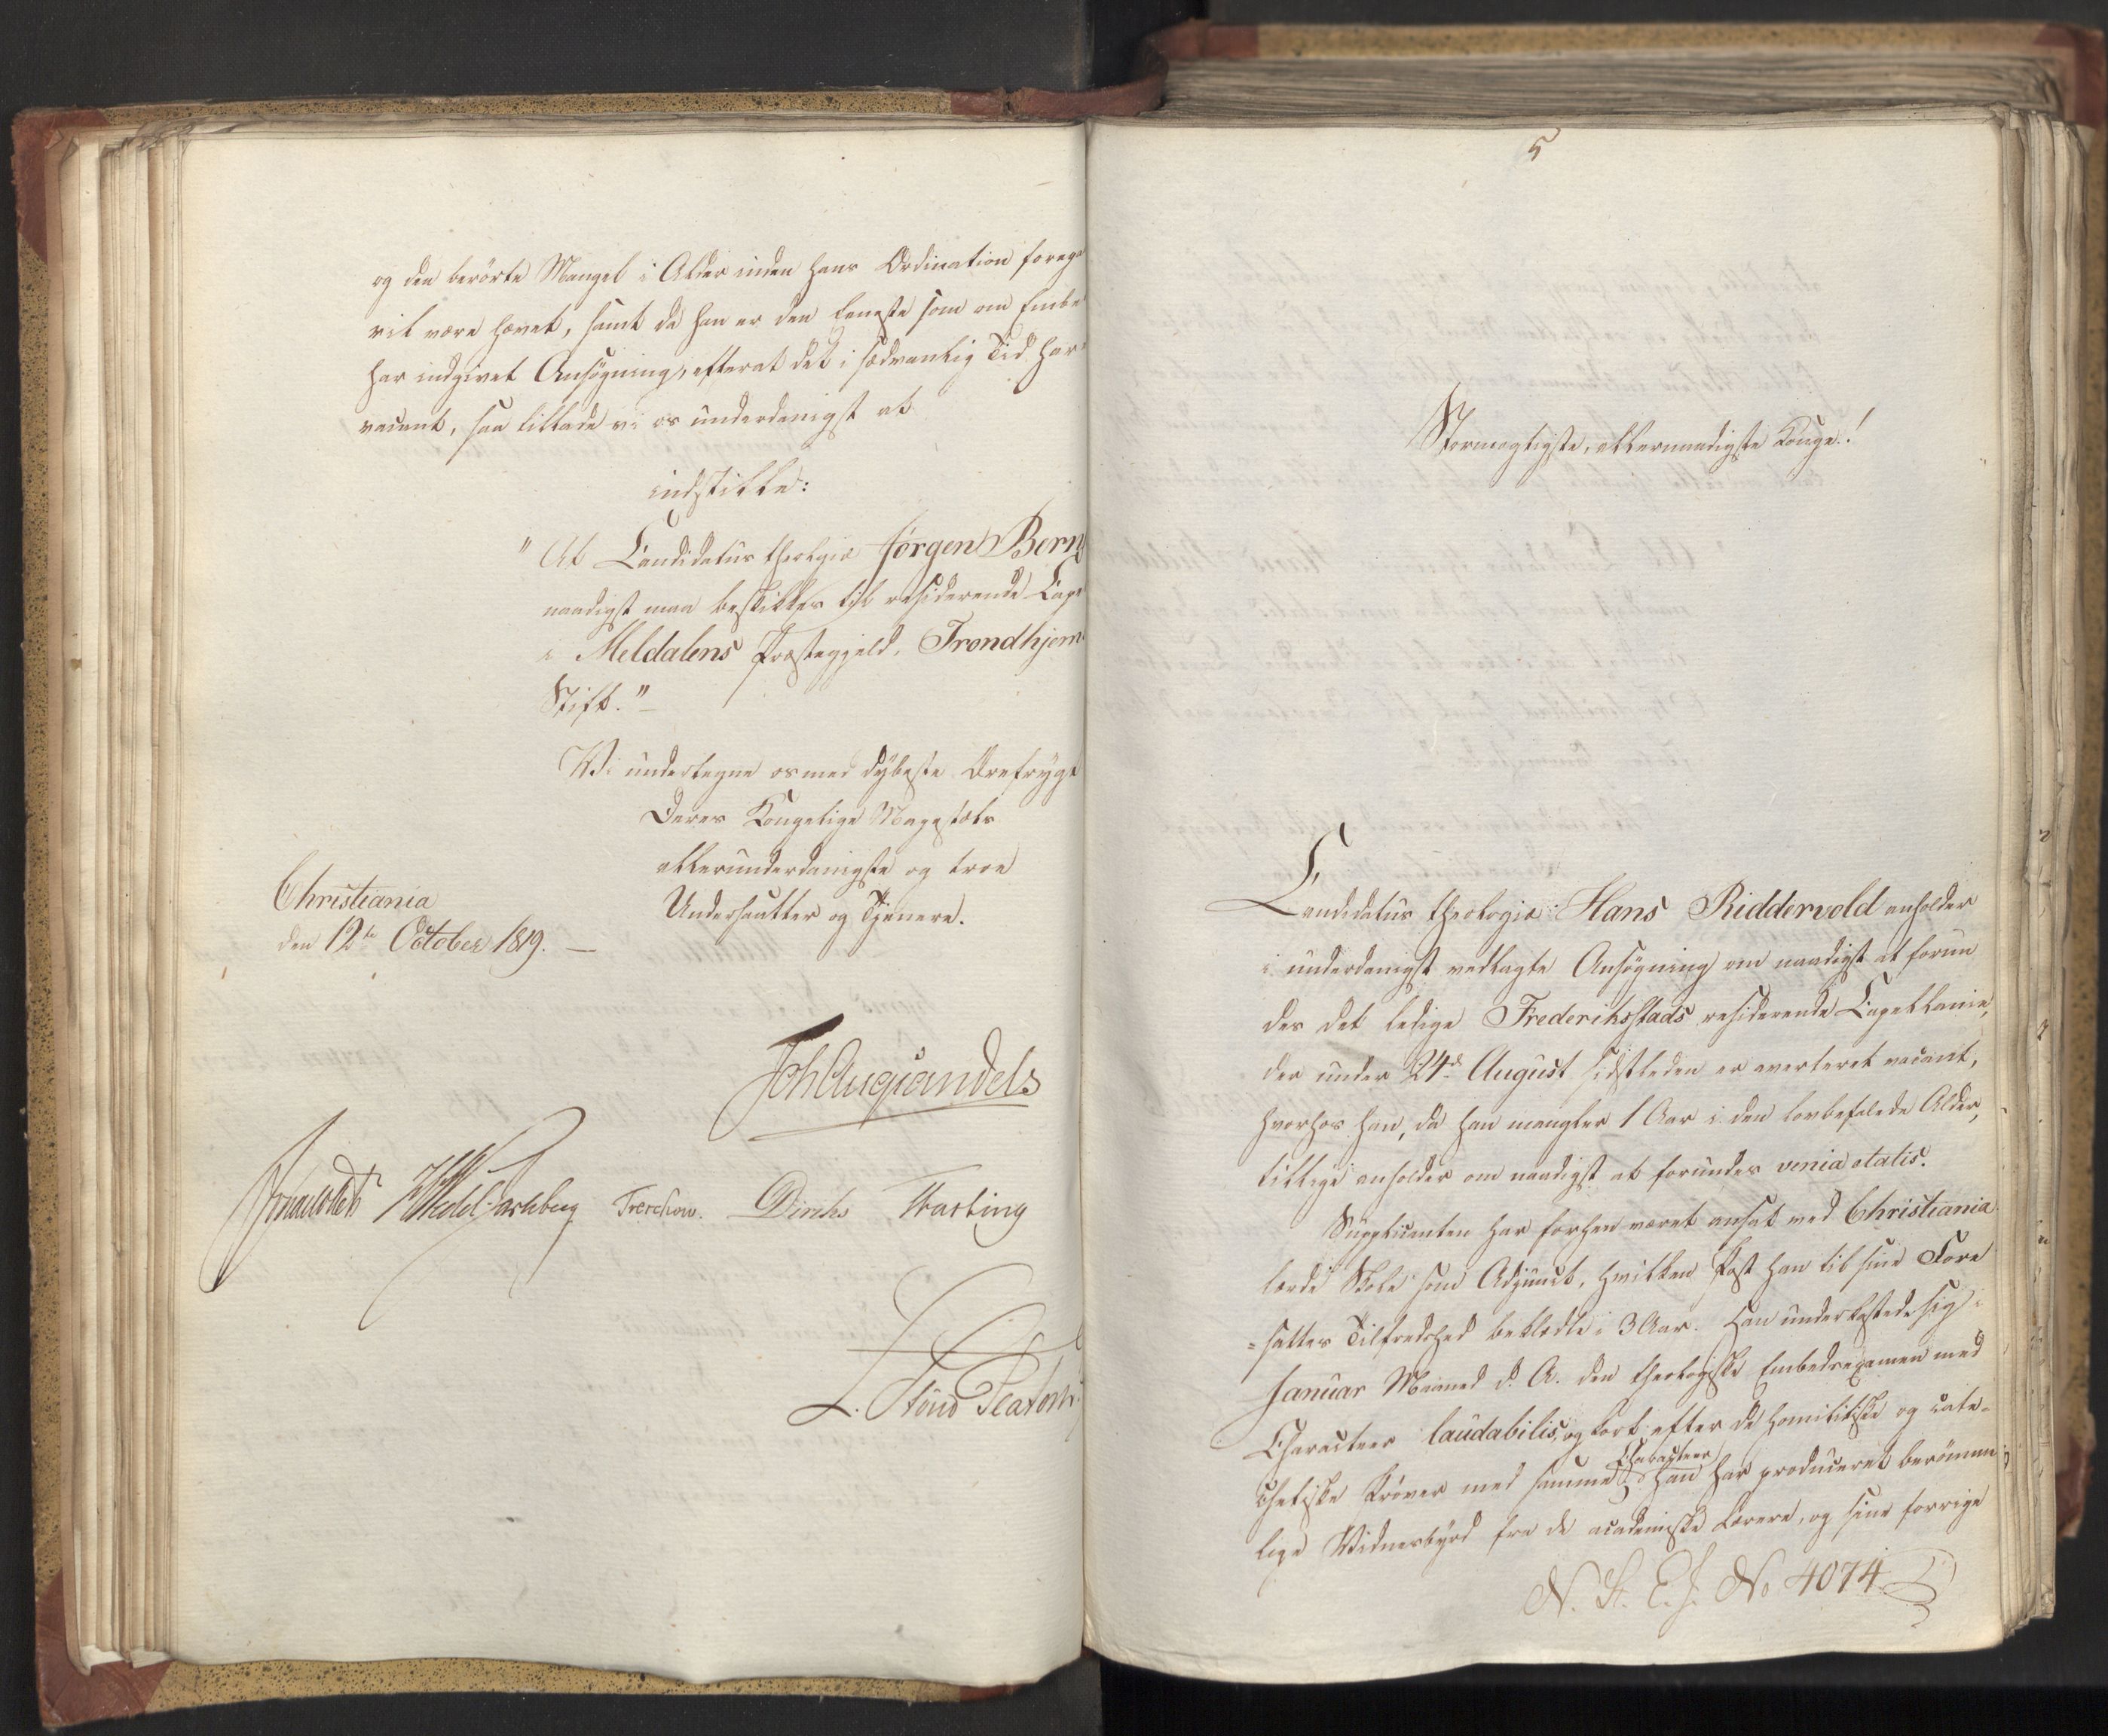 og den berörte Mangel i Alder inden hans Ordination forega
vil være hævet, samt da han er den Eneste som om Embe
har indgivet Ansögning, efterat det i sædvanlig Tid har
vacant, saa tillade vi os underdanigst at
indstille:
"At Candidatus theologiæ Jørgen Bern
naadigst maa beskikkes til residerende Cape
i Meldalens Præstegjeld, Trondhjems
Stift."
Vi undertegne os med dybeste Ærefrygt
Deres Kongelige Majestæts
allerunderdanigste og troe
Undersaatter og Tjenere.
Christiania
den 12te October 1819.
Joh Aug Sandels
Sommerhielm HWedel-Jarlsberg Treschow. Diriks Fasting
L. Stoud Platou
5
Stormægtigste, allernaadigste Konge!
Candidatus theologiæ Hans Riddervold anholder
i underdanigst vedlagte Ansögning om naadigst at forun
des det ledige Frederiksstads residerende Capellanie,
der under 24de August sidstleden er averteret vacant,
hvorhos han, da han mangler 1 Aar i den lovbefalede Alder,
tillige anholder om naadigst at forundes venia ætatis.
Supplicanten har forhen været ansat ved Christiania
lærde Skole som Adjunct, hvilken Post han til sine Fore
=satters Tilfredshed beklædte i 3 Aar. Han underkastede sig i
Januar Maaned d. A. den theologiske Embedsexamen med
Characteer laudabilis, og kort efter de homilitiske og cate-
chetiske Prøver med samme Characteer. Han har produceret berömme
lige Vidnesbyrd fra de academiske Lærere, og sine forrige
N. St. E. J. No 4074